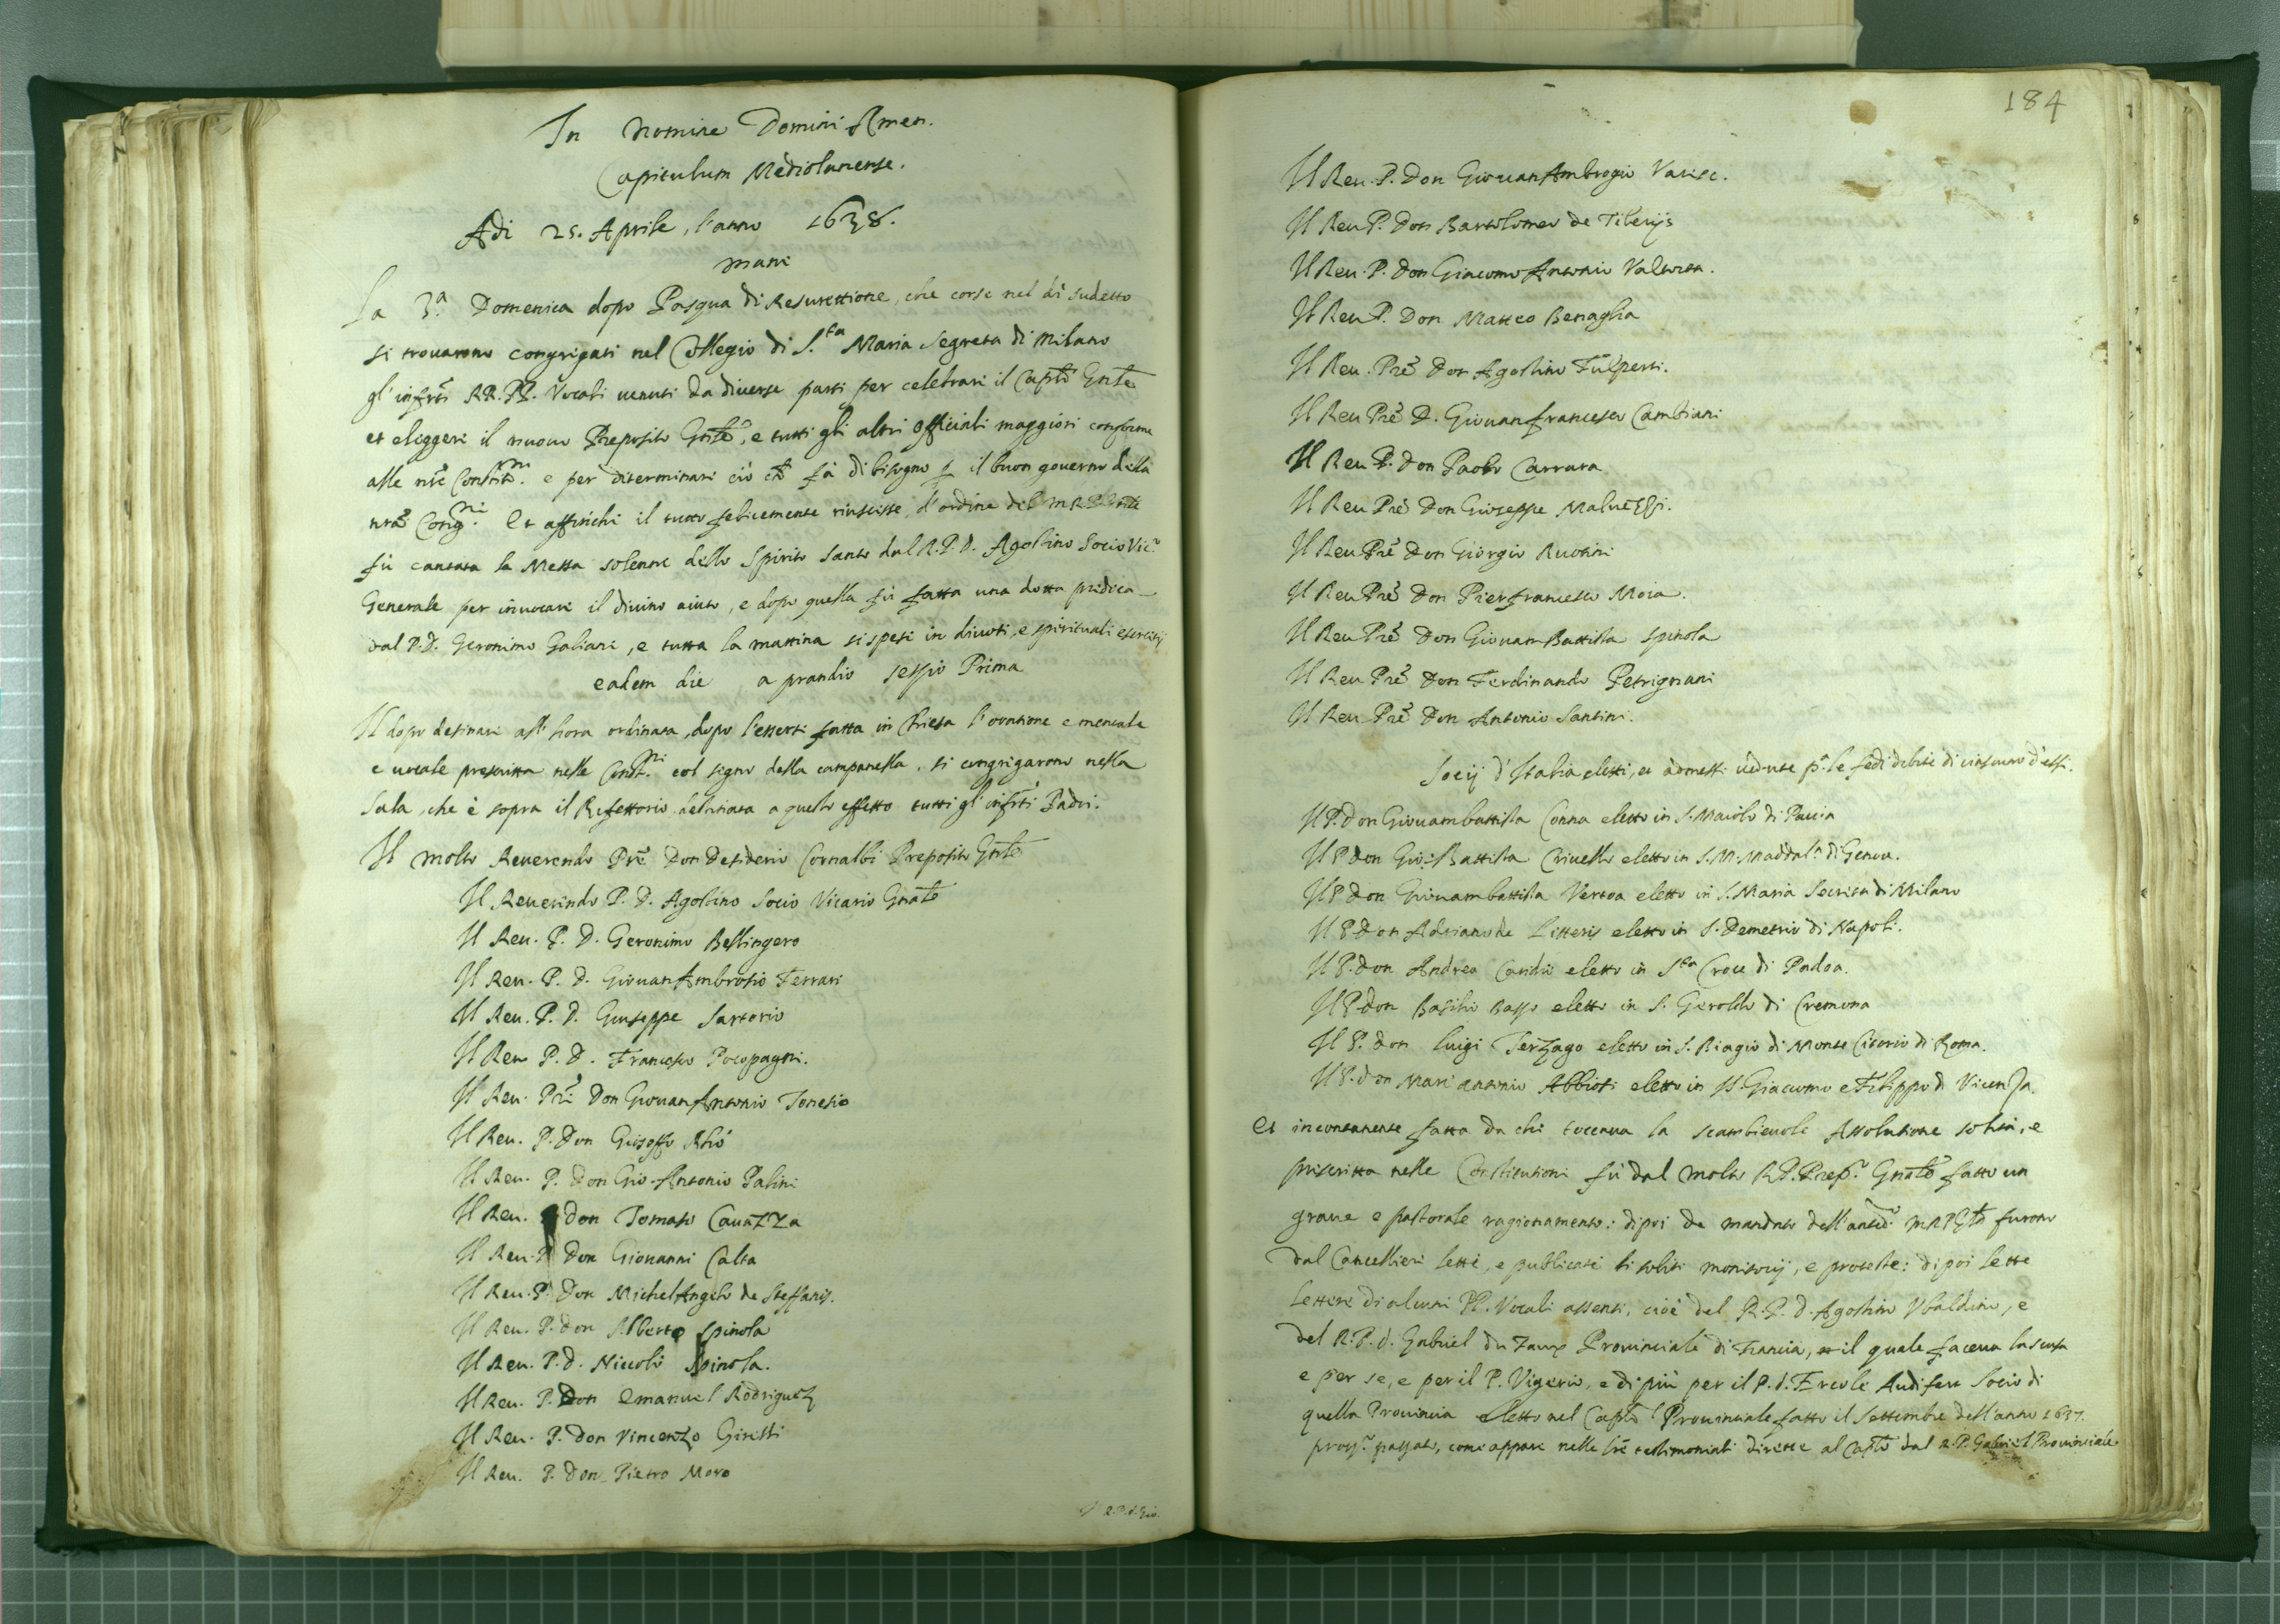 In Nomine Domini Amen.
Capitulum Mediolanense.
Adi 25. Aprile, l'anno 1638.
mane
La 3.ª Domenica dopo Pasqua di Resurettione, che corse nel dì sudetto
si trouarono congregati nel Collegio di S.ta Maria Segreta di Milano
gl'infrti RR. PP. Vocali uenuti da diuerse parti per celebrare il Capto Gnle
et eleggere il nuouo Preposito Gnle, e tutti gli altri officiali maggiori conforme
alle nre Constit.ni e per determinare ciò che fà di bisogno p il buon gouerno della
nra Cong.ni Et affinchè il tutto felicemente riuscisse, d'ordine del M.R.P. Gnle
fù cantata la Messa solenne dello Spirito Santo dal R.P.D. Agostino Socio Vic.º
Generale per inuocare il diuino aiuto, e dopo quella fù fatta una dotta predica
dal P.D. Geronimo Galiani, e tutta la mattina si spese in diuoti, e spirituali esercitij
eadem die a prandio sessio Prima
Il dopo desinare all'hora ordinata, dopo l'essersi fatta in Chiesa l'oratione e mentale
e uocale prescritta nelle Const.ni col segno della campanella, si congregarono nella
Sala, che è sopra il Refettorio destinata a questo effetto tutti gl'infrti Padri.
Il molto Reuerendo Pre Don Desiderio Cornalbi Preposito Gnle
Il Reuerendo P. D. Agostino Socio Vicario Gnale
Il Reu. P. D. Geronimo Bellingero
Il Reu. P. D. GiouanAmbrosio Ferrari
Il Reu. P. D. Giuseppe Sartorio
Il Reu P. D. Francesco Pocopagni.
Il Reu. Pre Don GiouanAntonio Tonesio
Il Reu. P. Don Gioseffo Rhò
Il Reu. P. Don Gio. Antonio Palini
Il Reu. P don Tomaso Cauazza
Il Reu. P Don Giouanni Calta
Il Reu. P. Don MichelAngelo de Steffanis.
Il Reu. P. don Alberto Spinola
Il Reu. P. d. Niccolò Spinola.
Il Reu. P. Don Emanuel Rodriguez
Il Reu. P. Don Vincenzo Giretti
Il Reu. P. Don Pietro Moro
Il R.P.d. Gio.
184
Il Reu. P. Don GiouanAmbrogio Varese.
Il Reu P. Don Bartolomeo de Tiberijs
Il Reu. P. Don Giacomo Antonio Valtorta.
Il Reu P. Don Matteo Benaglia
Il Reu. Pre Don Agostino Fulperti.
Il Reu Pre D. Giouanfrancesco Cambiani
Il Reu P. Don Paolo Carrara
Il Reu Pre Don Giuseppe Maluezzi.
Il Reu Pre Don Giorgio Ruotini
Il Reu Pre Don Pierfrancesco Moia.
Il Reu Pre Don Giouam Battista Spinola
Il Reu Pre Don Ferdinando Petrignani
Il Reu Pre Don Antonio Santini.
Socij d'Italia eletti, et admessi uedute p.ª le fedi debite di ciascuno d'essi.
Il P. don Giouambattista Conna eletto in S. Maiolo di Pauia
Il P don Gio. Battista Criuello eletto in S. M. Maddal.ª di Genoua.
Il P don Giouambattista Vertoa eletto in S. Maria Secreta di Milano
Il P don Adriano de Litteris eletto in S. Demetrio di Napoli.
Il P. don Andrea Caridio eletto in S.ta Croce di Padoa.
Il P don Basilio Basso eletto in S. Geroldo di Cremona
Il P. don Luigi Terzago eletto in S. Biagio di Monte Citorio di Roma.
Il P. don Marc'antonio Abbioti eletto in SS. Giacomo e Filippo di Vicenza.
Et incontanente fatta da chi toccaua la scambieuole Assolutione solita, e
prescritta nelle Constitutioni fù dal molto R.P. Prep.º Gnale fatto un
graue e pastorale ragionamento: dipoi de mandato dell'anted.º M R P Gnle furono
dal Cancelliere letti, e publicati li soliti monitorij, e proteste: dipoi lette
lettere di alcuni PP. Vocali assenti, cioè del R. P. d. Agostino Vbaldino, e
del R. P. d. Gabriel du Faux Prouinciale di Francia, il quale faceua la scusa
e per se, e per il P. Vigerio, e di più per il P. d. Ercole Audifere Socio di
quella Prouincia eletto nel Capto Prouinciale fatto il Settembre dell'anno 1637.
pross.º passato, come appare nelle lre testimoniali dirette al Capto dal R. P. Gabriel Prouinciale